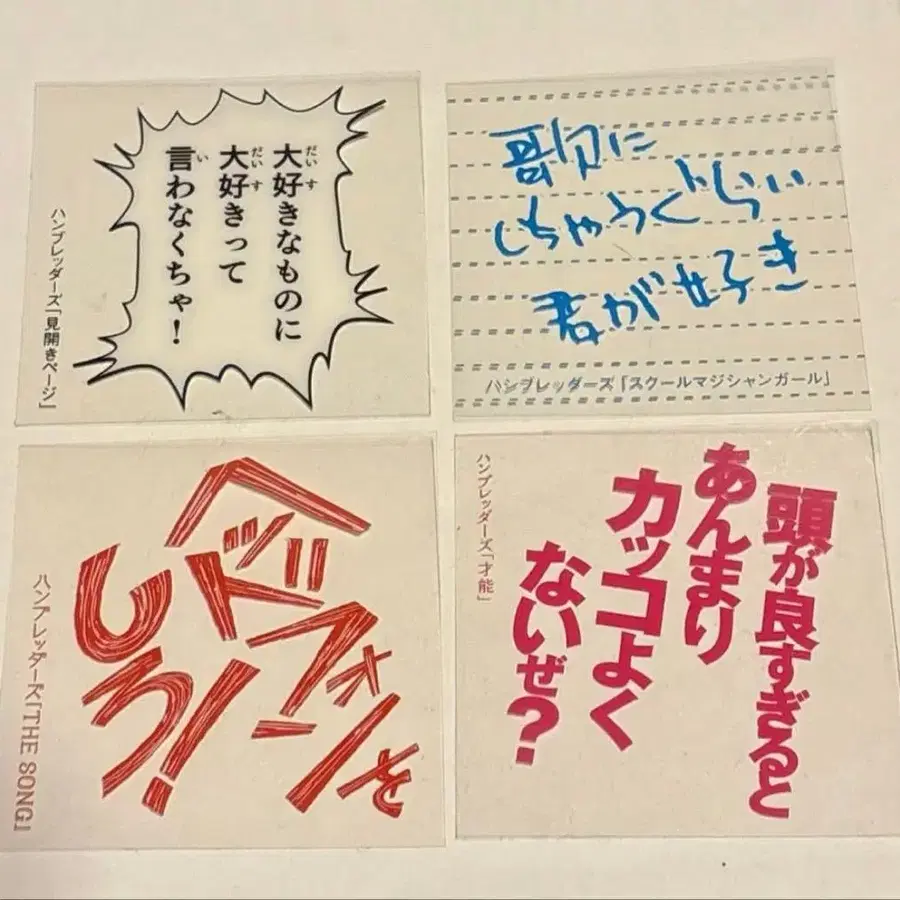 大好きなものに
大好きって
言わなくちゃ！
ハンブレッダーズ「見開きページ」
歌に
しちゃうぐらい
君が好き
ハンブレッダーズ「スクールマジシャンガール」
ヘッドフォンを
しろ！
ハンブレッダーズ「THE SONG」
頭が良すぎると
あんまり
カッコよく
ないぜ？
ハンブレッダーズ「才能」